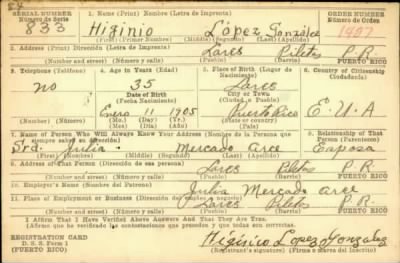 SERIAL NUMBER 1. Name (Print) Nombre (Letra de Imprenta) ORDER NUMBER
Número de Serie Número de Orden
833 Higinio López González 1987
(First) (Primer Nombre) (Middle) (Segundo) (Last) (Apellido)
2. Address (Print) Dirección (Letra de Imprenta)
Lares Piletas P.R.
(Number and street) (Número y calle) (Town) (Pueblo) (Barrio) PUERTO RICO
3. Telephone (Teléfono) 4. Age in Years (Edad) 5. Place of Birth (Lugar de Nacimiento) 6. Country of Citizenship (Ciudadanía)
no 35 Lares
Date of Birth City or Town
(Fecha Nacimiento) (Ciudad o Pueblo)
Enero 11 1905 Puerto Rico E.U.A
(Mo.) (Day) (Yr.) (State or country)
(Mes) (Día) (Año)
7. Name of Person Who Will Always Know Your Address (Nombre de la Persona que siempre sabrá su dirección) 8. Relationship of That Person (Parentesco)
Sra. Julia Mercado Arce Esposa
(First) (Nombre) (Middle) (Segundo) (Last) (Apellido)
9. Address of That Person (Dirección de esa persona)
Lares Piletas P.R.
(Number and street) (Número y calle) (Town) (Pueblo) (Barrio) PUERTO RICO
10. Employer's Name (Nombre del Patrono)
Julia Mercado Arce
11. Place of Employment or Business (Dirección del empleo o negocio)
Lares Piletas P.R.
(Number and street) (Número y calle) (Town) (Pueblo) (Barrio) PUERTO RICO
I Affirm That I Have Verified Above Answers And That They Are True.
(Afirmo que he verificado las contestaciones que preceden y que todas son correctas.)
REGISTRATION CARD
D. S. S. Form 1
(PUERTO RICO)
Higinico Lopez Gonzalez
(Registrant's signature) (Firma o marca del Inscrito)